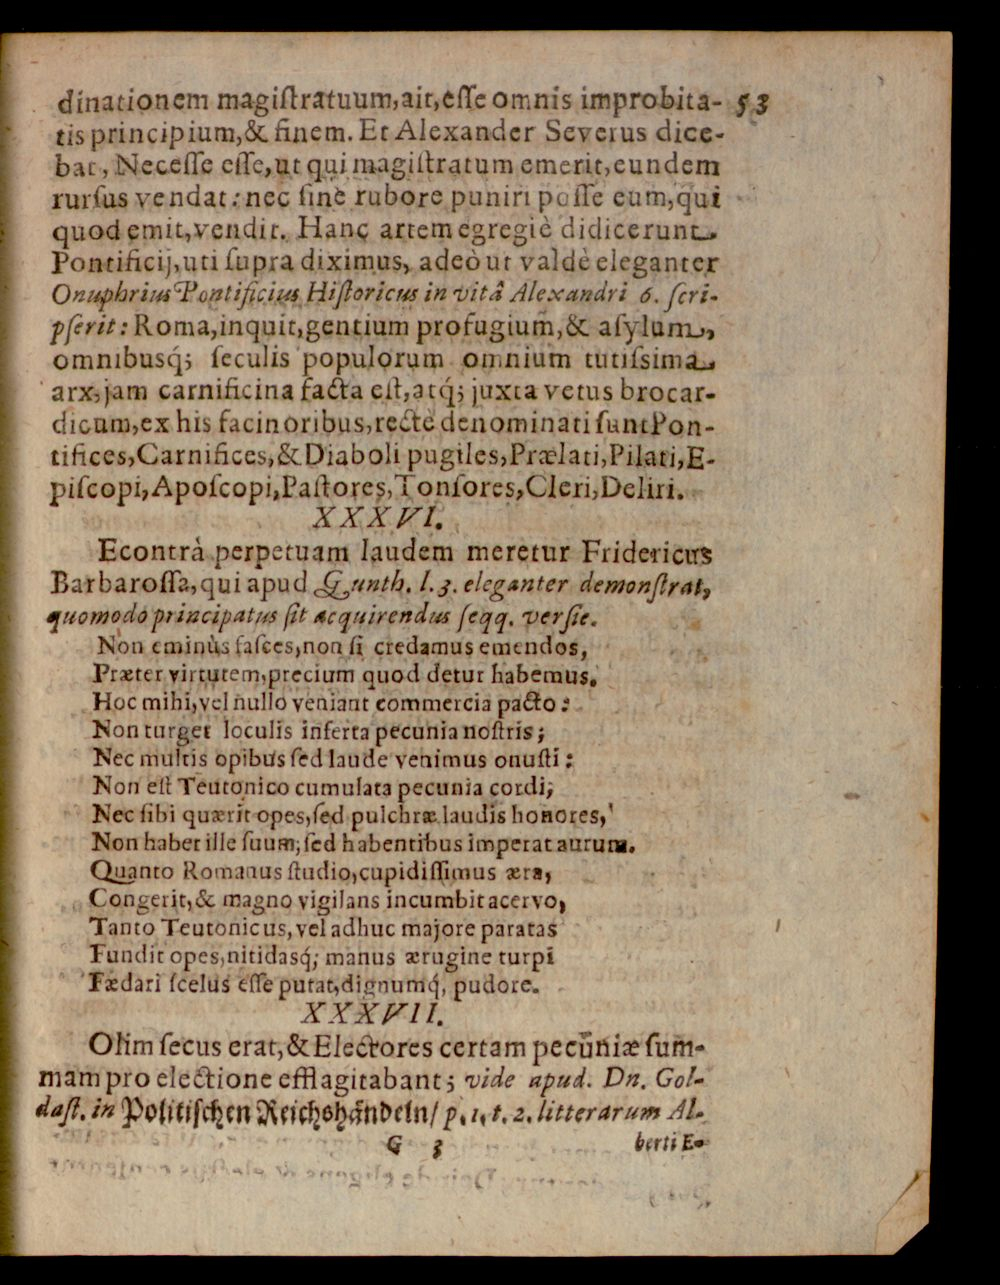 dinationem magiſtratuum,ait,eſſe omnis improbita- 53
tis principium,& finem. Et Alexander Severus dice-
bat, Neceſſe eſſe,ut qui magiſtratum emerit,eundem
rurſus vendat: nec ſine rubore puniri poſſe eum,qui
quod emit,vendit. Hanc artem egregiè didicerunt
Pontificij,uti ſupra diximus, adeò ut valdè eleganter
Onuphrius Pontificius Hiſtoricus in vitâ Alexandri 6. ſcri-
pſerit: Roma,inquit,gentium profugium,& aſylum,
omnibusq́; ſeculis populorum omnium tutiſsima
arx,jam carnificina facta eſt,atq́; juxta vetus brocar-
dicum,ex his facinoribus,rectè denominati ſunt Pon-
tifices,Carnifices,& Diaboli pugiles,Prælati,Pilati,E-
piſcopi,Apoſcopi,Paſtores,Tonſores,Cleri,Deliri.
XXXVI.
Econtrà perpetuam laudem meretur Fridericus
Barbaroſſa,qui apud Gunth. l.3. eleganter demonſtrat,
quomodo principatus ſit acquirendus ſeqq. verſie.
Non eminùs faſces,non ſi credamus emendos,
Præter virtutem,precium quod detur habemus.
Hoc mihi,vel nullo veniant commercia pacto:
Non turget loculis inſerta pecunia noſtris;
Nec multis opibus ſed laude venimus onuſti:
Non eſt Teutonico cumulata pecunia cordi;
Nec ſibi quærit opes,ſed pulchræ laudis honores,
Non habet ille ſuum; ſed habentibus imperat aurum.
Quanto Romanus ſtudio,cupidiſſimus æra,
Congerit,& magno vigilans incumbit acervo,
Tanto Teutonicus,vel adhuc majore paratas
Fundit opes,nitidasq́; manus ærugine turpi
Fædari ſcelus eſſe putat,dignumq́; pudore.
XXXVII.
Olim ſecus erat,& Electores certam pecūniæ ſum-
mam pro electione efflagitabant; vide apud. Dn. Gol-
daſt. in Politiſchen Reichshändeln/ p. 1, t. 2. litterarum Al-
G 3 berti E-